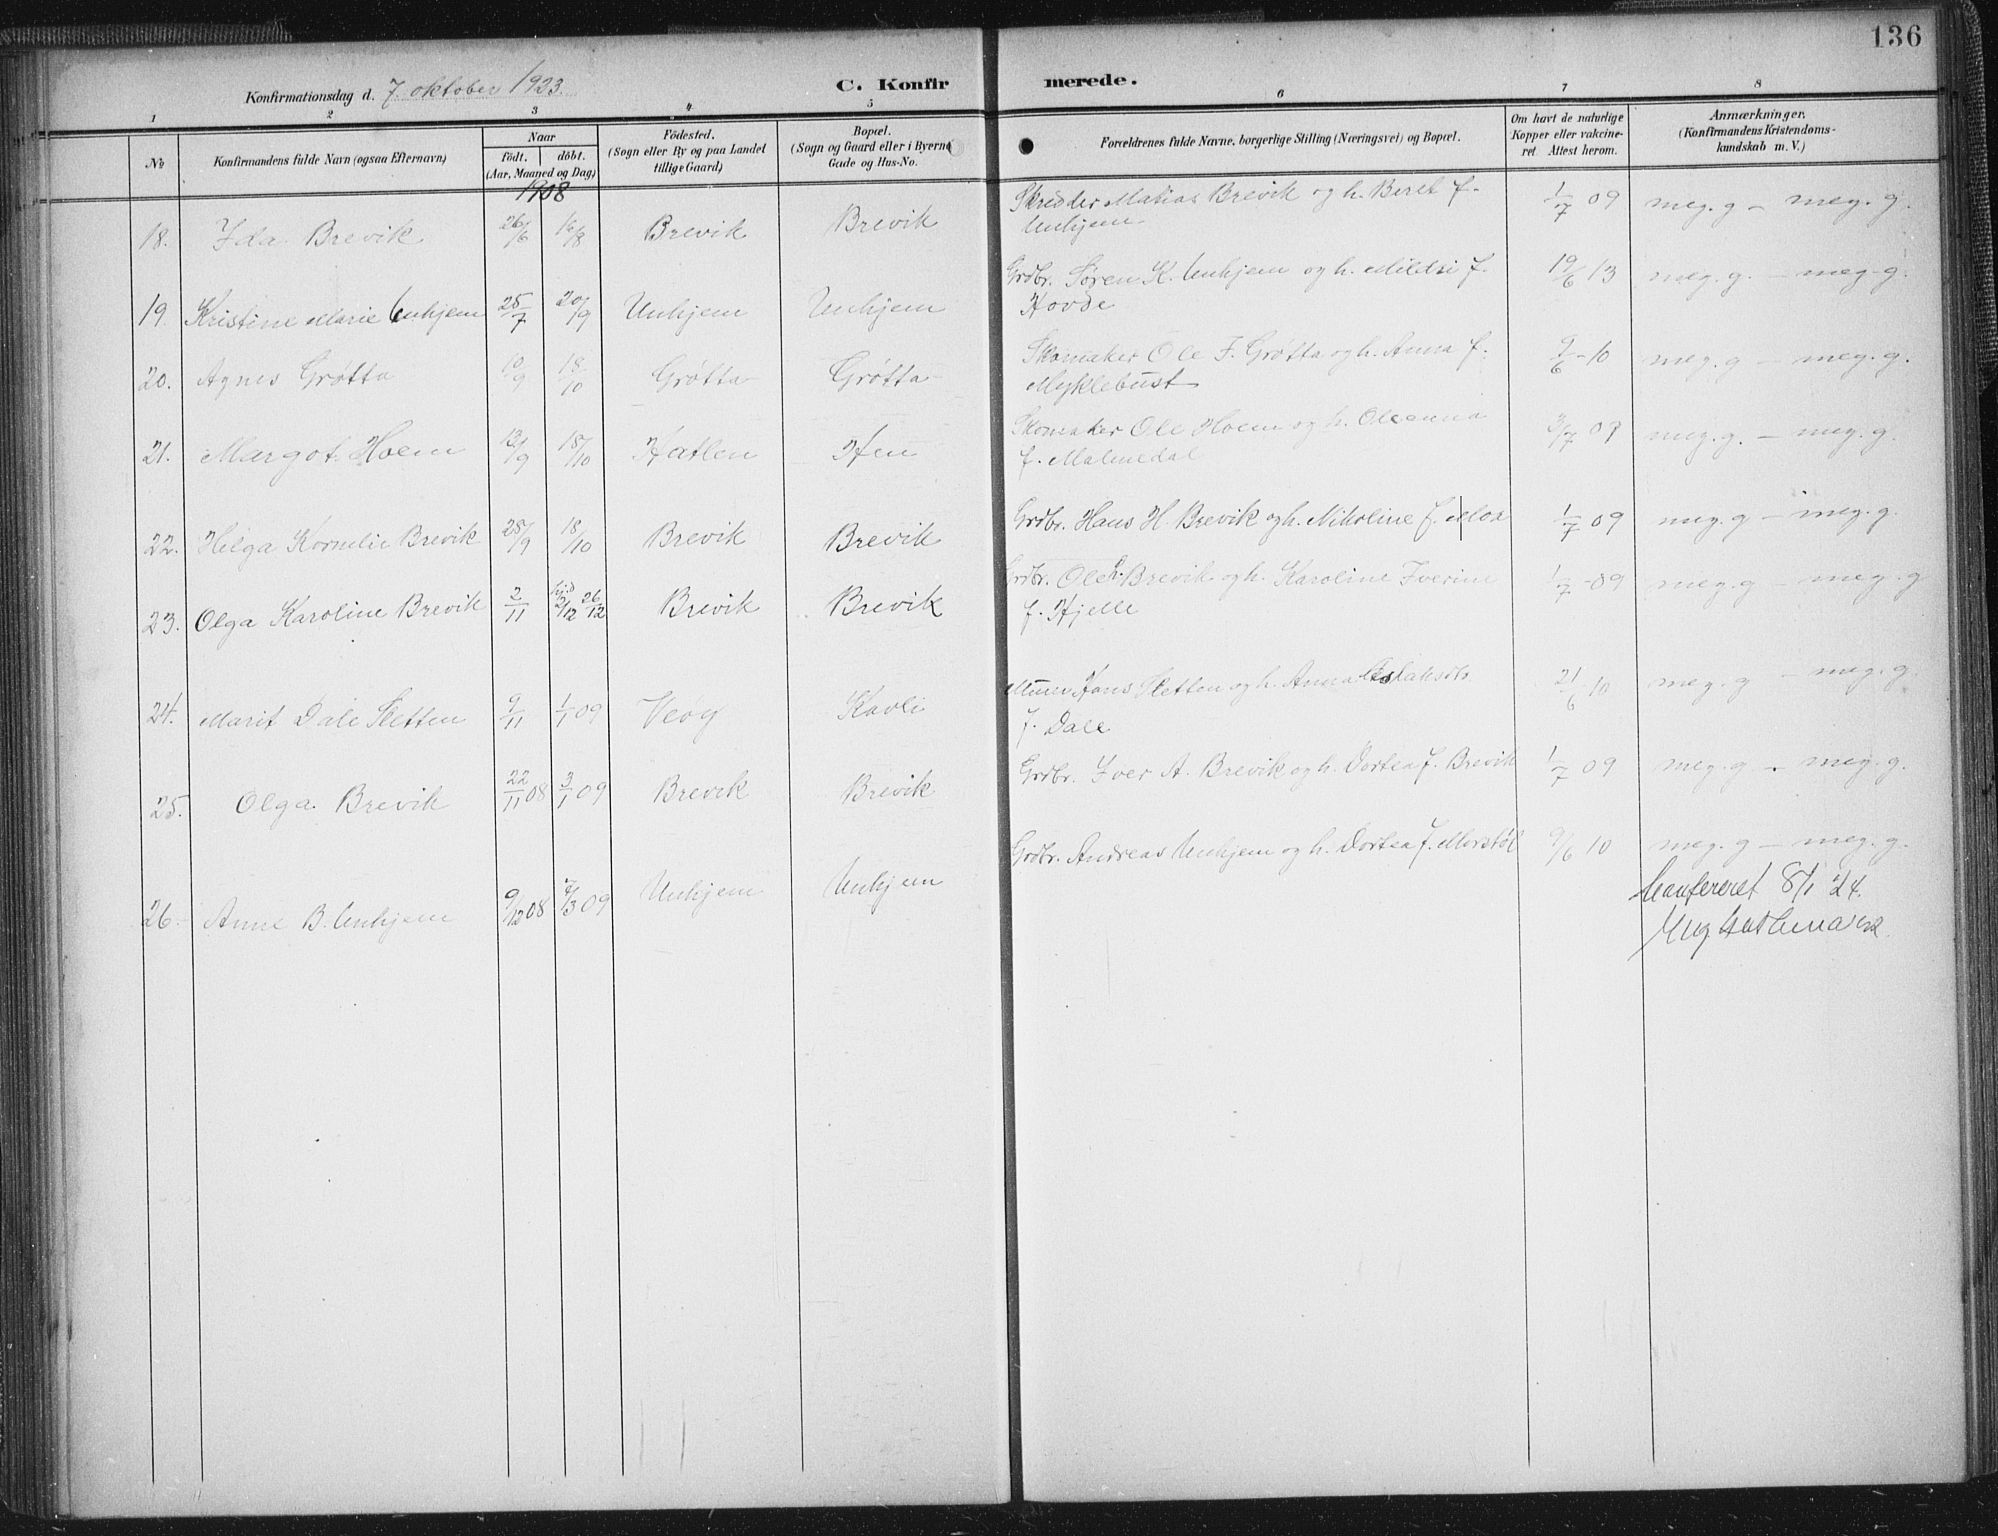 136
Konfirmationsdag d. 7. oktober 1923.
C. Konfirmerede.
1 2 3 4 5 6 7 8
No
Konfirmandens fulde Navn (ogsaa Efternavn).
Naar
födt. döbt.
(Aar, Maaned og Dag)
Födested.
(Sogn eller By og paa Landet
tillige Gaard)
Bopæl.
(Sogn og Gaard eller i Byerne
Gade og Hus-No.
Forældrenes fulde Navne, borgerlige Stilling (Næringsvei) og Bopæl.
Om havt de naturlige
Kopper eller vakcine-
ret. Attest herom.
Anmærkninger.
(Konfirmandens Kristendoms-
kundskab m. V.)
1908
18. Ida Brevik 26/6 16/8 Brevik Brevik Skredder Matias Brevik og h. Beret f. 1/7 09 meg. g - meg. g.
Unhjem
19. Kristine Marie Unhjem 25/7 20/9 Unhjem Unhjem Grdbr. Søren K. Unhjem og h. Mildri f. 19/6 13 meg. g. - meg. g.
Hovde
20. Agnes Grøtta 10/9 18/10 Grøtta Grøtta Skomaker Ole F. Grøtta og h. Anna f. 9/6-10 meg. g - meg. g.
Myklebust
21. Margot Hoem 13/9 18/10 Hatlen Hen Skomaker Ole Hoem og h. Oleanna 3/7 09 meg. g. - meg. g.
f. Malmedal
22. Helga Kornelie Brevik 25/9 18/10 Brevik Brevik Grdbr. Hans H. Brevik og h. Nikoline f. Moa 1/7 09 meg. g - meg. g.
23. Olga Karoline Brevik 2/11 hjd 2/12 26/12 Brevik Brevik Grdbr. Ole H. Brevik og h. Karoline Iverine 1/7-09 meg. g - meg. g
f. Hjelle
24. Marit Dale Sletten 9/11 1/1 09 Veøy Kavli Murer Hans Sletten og h. Anna Aslaksdtr. 21/6 10 meg. g - meg. g.
f. Dale
25. Olga Brevik 22/11 08 3/1 09 Brevik Brevik Grdbr. Iver A. Brevik og h. Dortea f. Brevik 1/7 09 meg. g - meg. g.
26. Anne B. Unhjem 9/12 08 7/3 09 Unhjem Unhjem Grdbr. Andreas Unhjem og h. Dortea f. Morstøl 9/6 10 meg. g - meg. g.
Konfereret 8/1 '24.